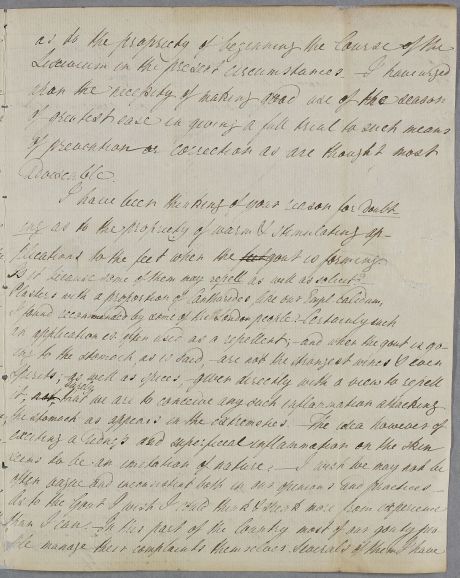 as to the propriety of beginning the Course of the
in the present circumstances. I have urged
upon the necessity of making use of the season
of greatest ease in giving a full trial to such means
of prevention or correction as are thought most
adviseable.
I have been thinking of your reason for doubt
ing as to the propriety of warm & stimulating ap-
plications to the feet when the gout is forming.
Is it because some of them may repell as well as solicit?
Plasters with a proportion of Cantharides, like our Empl. calidum,
I found recommended by some of the London people. Certainly such
an application is often used as a repellent; - and when the gout is go-
ing to the stomach, as is said - are not the strongest wines & even
spirits, as well as spices, - given directly with a view to repell
it, that we are to conceive any such inflammation attacking
the stomach as appears in the extremeties. - The idea however of
exciting a and superficial inflammation on the skin
seems to be an imitation of nature. - I wish we may not be
often vague and inconsistent both in our opinions and practices -
As to the Gout I wish I could think & speak more from experience
than I can. - In this part of the Country most of our gouty peo-
ple manage their complaints themselves. Severals of them I have